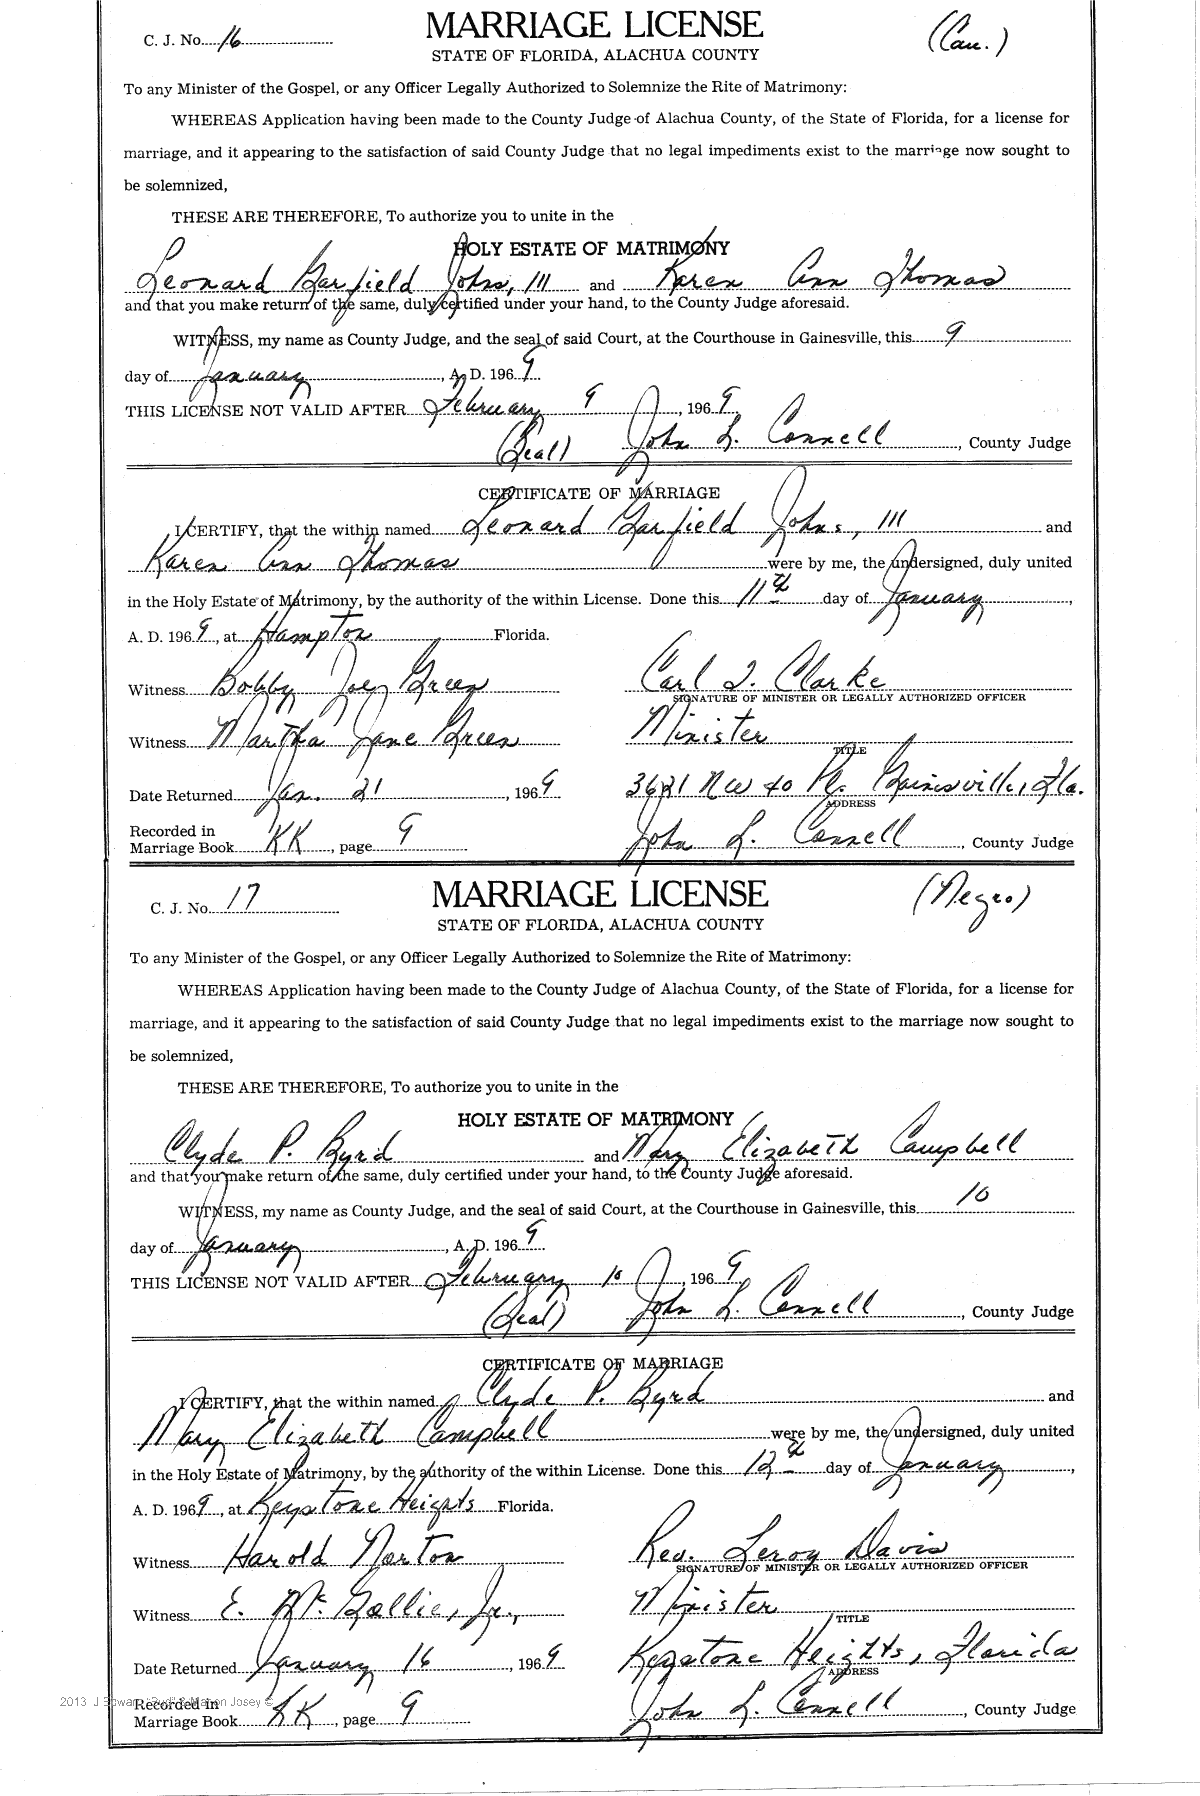 C. J. No. 16 MARRIAGE LICENSE (Cau.)
STATE OF FLORIDA, ALACHUA COUNTY
To any Minister of the Gospel, or any Officer Legally Authorized to Solemnize the Rite of Matrimony:
WHEREAS Application having been made to the County Judge of Alachua County, of the State of Florida, for a license for
marriage, and it appearing to the satisfaction of said County Judge that no legal impediments exist to the marriage now sought to
be solemnized,
THESE ARE THEREFORE, To authorize you to unite in the
HOLY ESTATE OF MATRIMONY
Leonard Garfield Johns, III and Karen Ann Thomas
and that you make return of the same, duly certified under your hand, to the County Judge aforesaid.
WITNESS, my name as County Judge, and the seal of said Court, at the Courthouse in Gainesville, this 9
day of January, A. D. 1969
THIS LICENSE NOT VALID AFTER February 9, 1969
(Seal) John L. Connell, County Judge
CERTIFICATE OF MARRIAGE
I CERTIFY, that the within named Leonard Garfield Johns, III and
Karen Ann Thomas were by me, the undersigned, duly united
in the Holy Estate of Matrimony, by the authority of the within License. Done this 11th day of January,
A. D. 1969, at Hampton Florida.
Witness Bobby Joe Green Carl I. Clarke
SIGNATURE OF MINISTER OR LEGALLY AUTHORIZED OFFICER
Witness Martha Jane Green Minister
TITLE
Date Returned Jan. 21, 1969 3621 NW 40 Pl. Gainesville, Fla.
ADDRESS
Recorded in
Marriage Book KK, page 9 John L. Connell, County Judge
C. J. No. 17 MARRIAGE LICENSE (Negro)
STATE OF FLORIDA, ALACHUA COUNTY
To any Minister of the Gospel, or any Officer Legally Authorized to Solemnize the Rite of Matrimony:
WHEREAS Application having been made to the County Judge of Alachua County, of the State of Florida, for a license for
marriage, and it appearing to the satisfaction of said County Judge that no legal impediments exist to the marriage now sought to
be solemnized,
THESE ARE THEREFORE, To authorize you to unite in the
HOLY ESTATE OF MATRIMONY
Clyde P. Byrd and Mary Elizabeth Campbell
and that you make return of the same, duly certified under your hand, to the County Judge aforesaid.
WITNESS, my name as County Judge, and the seal of said Court, at the Courthouse in Gainesville, this 10
day of January, A. D. 1969
THIS LICENSE NOT VALID AFTER February 10, 1969
(Seal) John L. Connell, County Judge
CERTIFICATE OF MARRIAGE
I CERTIFY, that the within named Clyde P. Byrd and
Mary Elizabeth Campbell were by me, the undersigned, duly united
in the Holy Estate of Matrimony, by the authority of the within License. Done this 12th day of January,
A. D. 1969, at Keystone Heights Florida.
Witness Harold Norton Rev. Leroy Davis
SIGNATURE OF MINISTER OR LEGALLY AUTHORIZED OFFICER
Witness E. Mc. Gollie, Jr., Minister
TITLE
Date Returned January 16, 1969 Keystone Heights, Florida
ADDRESS
2013 J Edward "Bud" & Marion Josey ©
Recorded in
Marriage Book KK, page 9 John L. Connell, County Judge